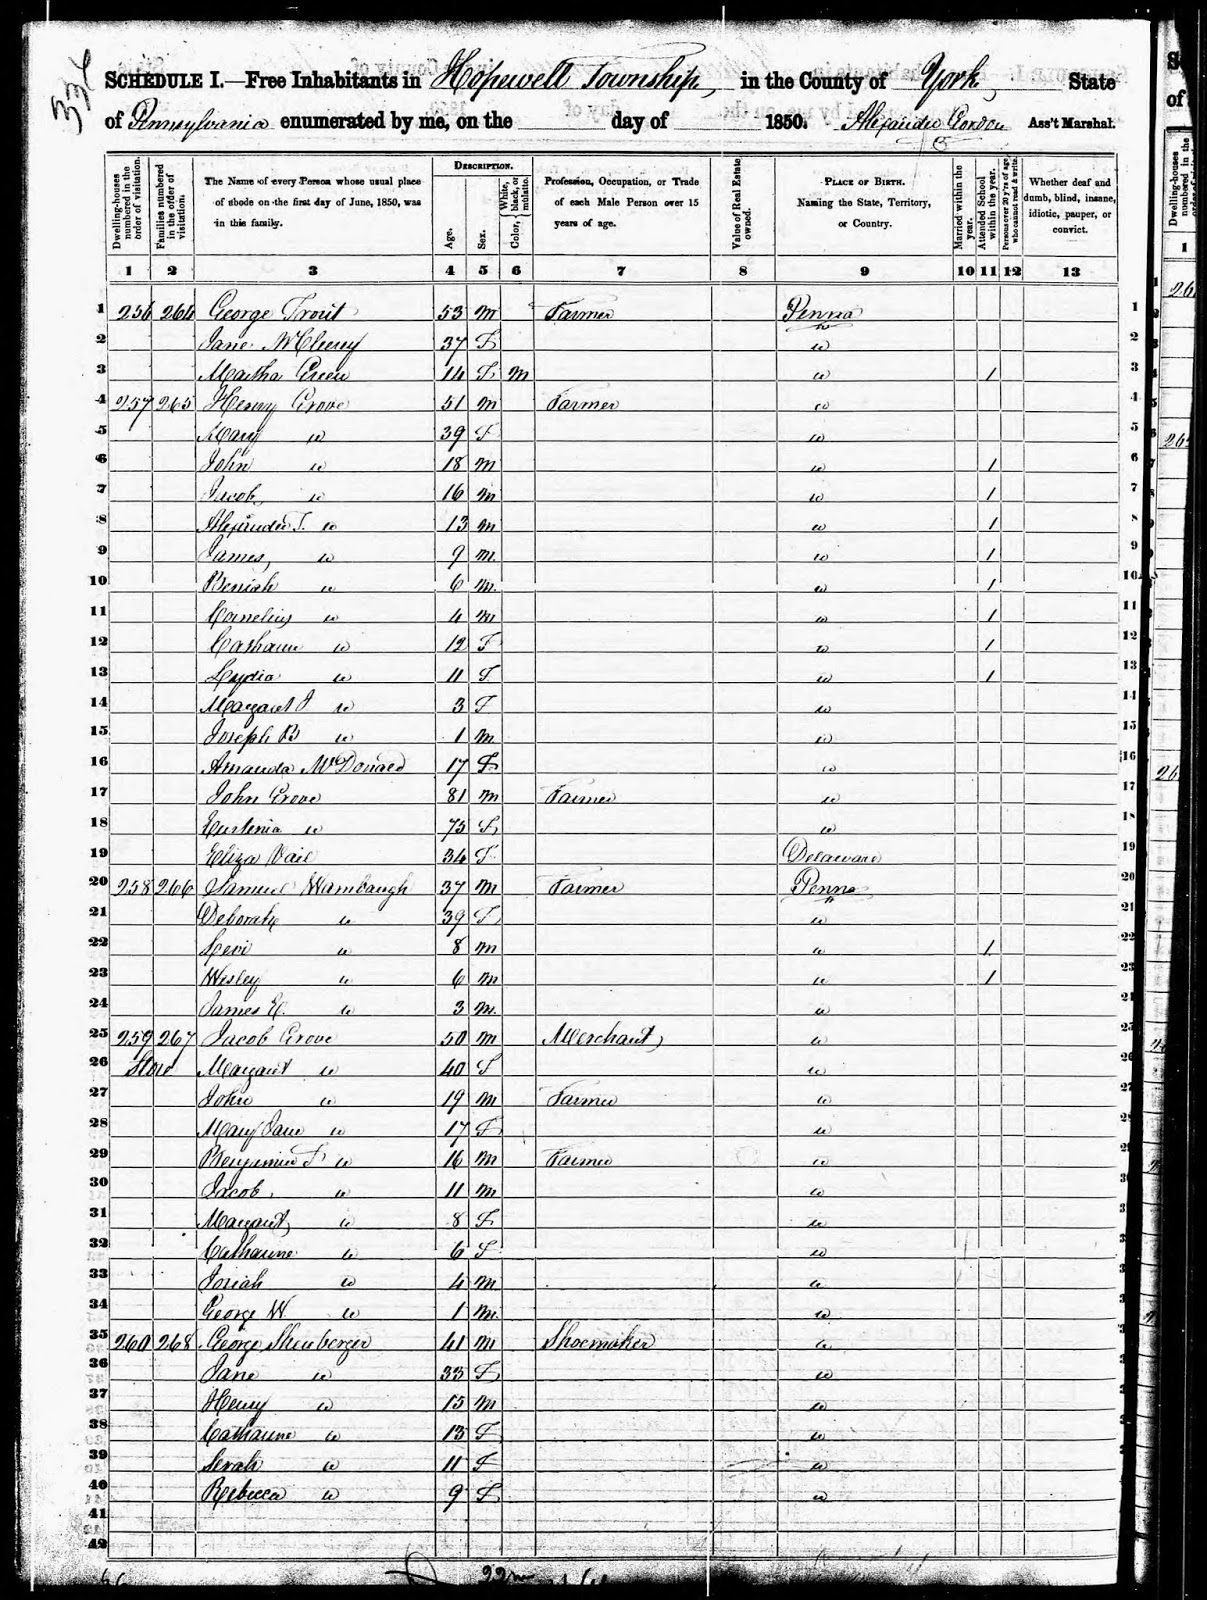 334
SCHEDULE I.—Free Inhabitants in Hopewell Township, in the County of York, State
of Pennsylvania enumerated by me, on the day of 1850. Alexander Gordon Ass't Marshal.
Dwelling-houses numbered in the order of visitation.
Families numbered in the order of visitation.
The Name of every Person whose usual place of abode on the first day of June, 1850, was in this family.
DESCRIPTION.
Age.
Sex.
Color, White, black, or mulatto.
Profession, Occupation, or Trade of each Male Person over 15 years of age.
Value of Real Estate owned.
PLACE OF BIRTH. Naming the State, Territory, or Country.
Married within the year.
Attended School within the year.
Persons over 20 y'rs of age who cannot read & write.
Whether deaf and dumb, blind, insane, idiotic, pauper, or convict.
1 2 3 4 5 6 7 8 9 10 11 12 13
1 256 264 George Trout 53 M Farmer Penna 1
2 Jane McCleery 37 F " 2
3 Martha Green 14 F M " 1 3
4 257 265 Henry Grove 51 M Farmer " 4
5 Mary " 39 F " 5
6 John " 18 M " 1 6
7 Jacob " 16 M " 1 7
8 Alexander T. " 13 M " 1 8
9 James " 9 M " 1 9
10 Beniah " 6 M " 1 10
11 Cornelius " 4 M " 1 11
12 Catharine " 12 F " 1 12
13 Lydia " 11 F " 1 13
14 Margaret J " 3 F " 14
15 Joseph B " 1 M " 15
16 Amanda McDonald 17 F " 16
17 John Grove 81 M Farmer " 17
18 " 75 F " 18
19 Eliza Vail 34 F Delaware 19
20 258 266 Samuel Wambaugh 37 M Farmer Penna 20
21 Deborah " 39 F " 21
22 Levi " 8 M " 1 22
23 Wesley " 6 M " 1 23
24 James E. " 3 M " 24
25 259 267 Jacob Grove 50 M Merchant " 25
26 Store Margaret " 40 F " 26
27 John " 19 M Farmer " 27
28 Mary Jane " 17 F " 28
29 Benjamin F " 16 M Farmer " 29
30 Jacob " 11 M " 30
31 Margaret " 8 F " 31
32 Catharine " 6 F " 32
33 Josiah " 4 M " 33
34 George W " 1 M " 34
35 260 268 George Shenberger 41 M Shoemaker " 35
36 Jane " 33 F " 36
37 Henry " 15 M " 37
38 Catharine " 13 F " 38
39 Serah " 11 F " 39
40 Rebecca " 9 F " 40
41 41
42 42
22 m